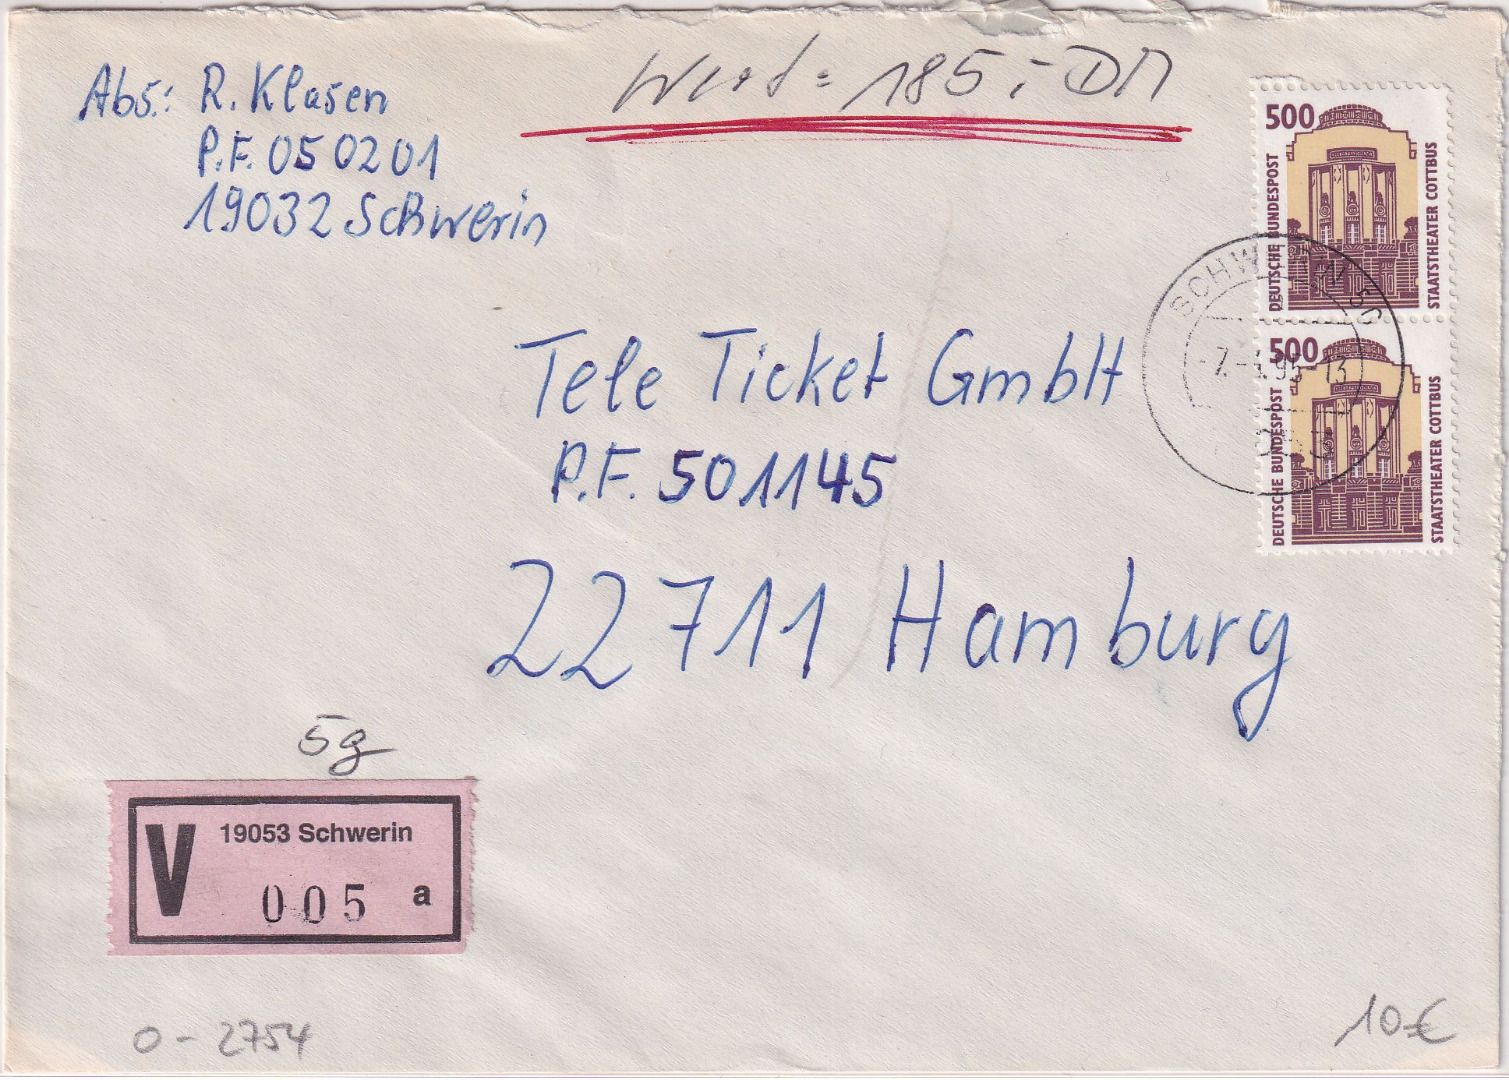 Abs.: R. Klasen
P.F. 050201
19032 Schwerin
Wert = 185,- DM
500
DEUTSCHE BUNDESPOST
STAATSTHEATER COTTBUS
500
DEUTSCHE BUNDESPOST
STAATSTHEATER COTTBUS
SCHWERIN 50
Tele Ticket GmbH
P.F. 501145
22711 Hamburg
5g
V 19053 Schwerin
005 a
0-2754
10€